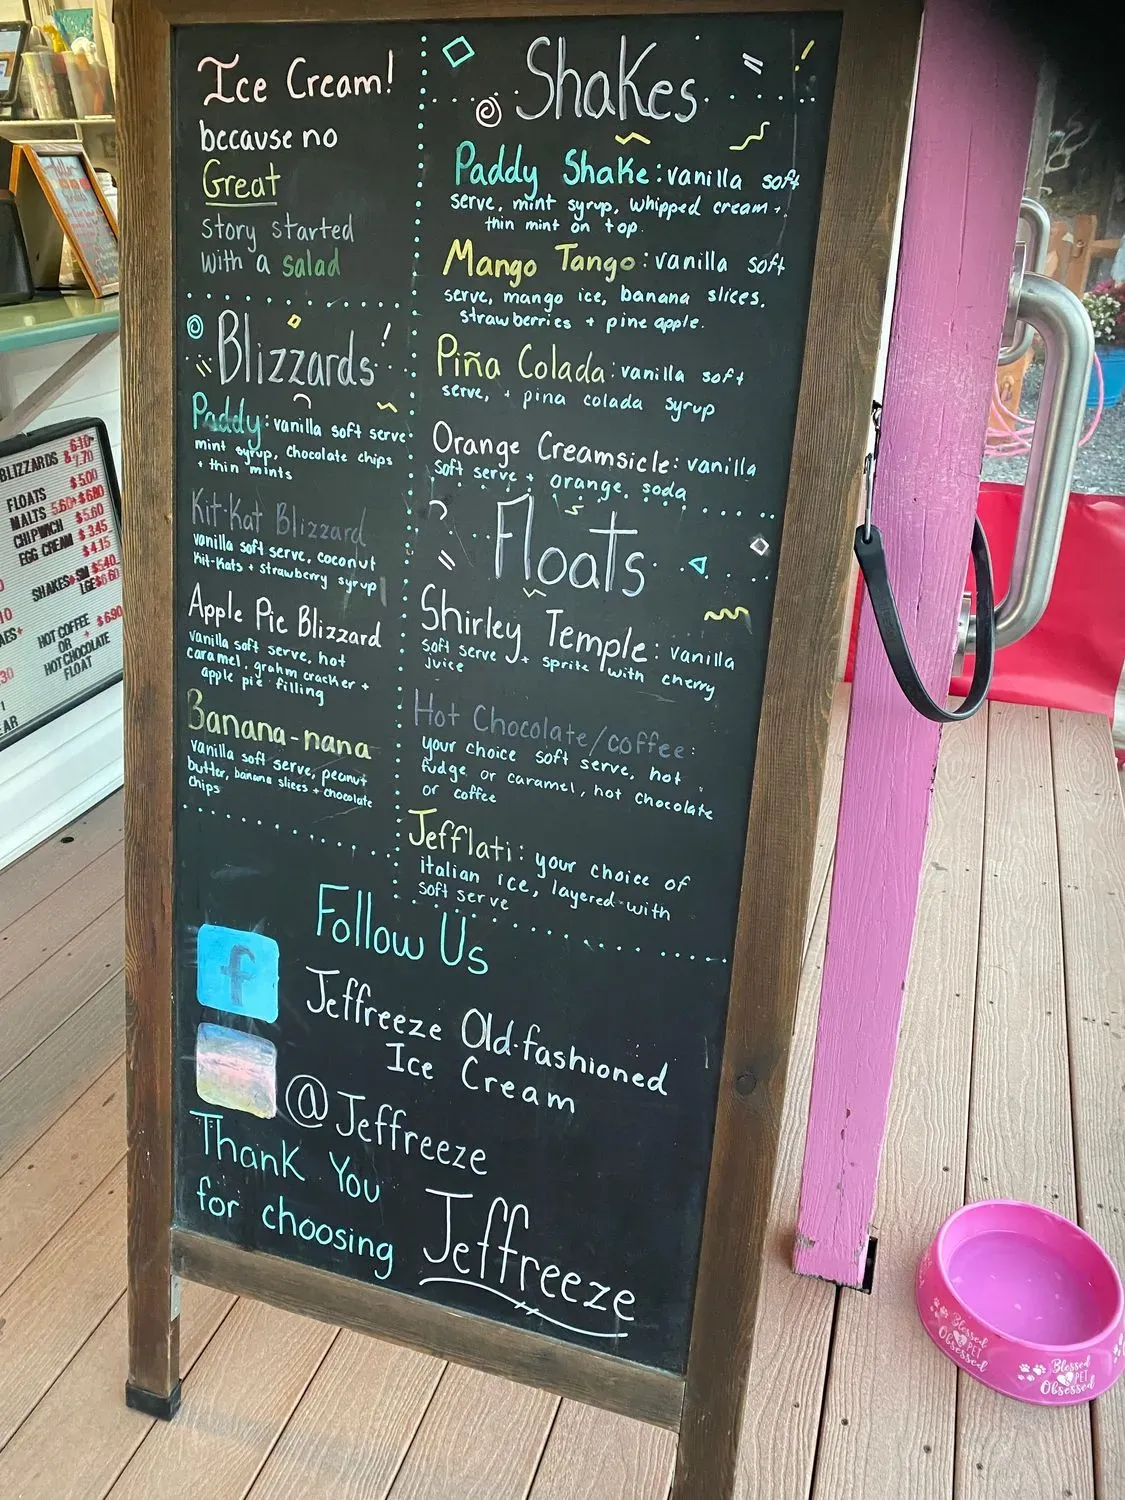 Ice Cream!
because no
Great
story started
with a salad
Blizzards
Paddy: vanilla soft serve
mint syrup, chocolate chips
+ thin mints
Kit-Kat Blizzard
vanilla soft serve, coconut
Kit-Kats + strawberry syrup
Apple Pie Blizzard
vanilla soft serve, hot
caramel, grahm cracker +
apple pie filling
Banana-nana
vanilla soft serve, peanut
butter, banana slices + chocolate
chips
Shakes
Paddy Shake: vanilla soft
serve, mint syrup, whipped cream +
thin mint on top.
Mango Tango: vanilla soft
serve, mango ice, banana slices,
strawberries + pineapple.
Piña Colada: vanilla soft
serve, + pina colada syrup
Orange Creamsicle: vanilla
soft serve + orange soda
Floats
Shirley Temple: vanilla
soft serve + sprite with cherry
juice
Hot Chocolate/coffee:
your choice soft serve, hot
fudge or caramel, hot chocolate
or coffee
Jefflati: your choice of
italian ice, layered with
soft serve
Follow Us
f
Jeffreeze Old-fashioned
Ice Cream
@Jeffreeze
Thank You
for choosing
Jeffreeze
BLIZZARDS 6.10
& 7.70
FLOATS $5.00
MALTS 5.60 + $6.80
CHIPWICH $5.60
EGG CREAM $3.45
$4.15
SHAKES SM $5.40
LGE $6.60
HOT COFFEE $6.90
OR
HOT CHOCOLATE
FLOAT
Blessed
PET
Obsessed
Blessed
PET
Obsessed